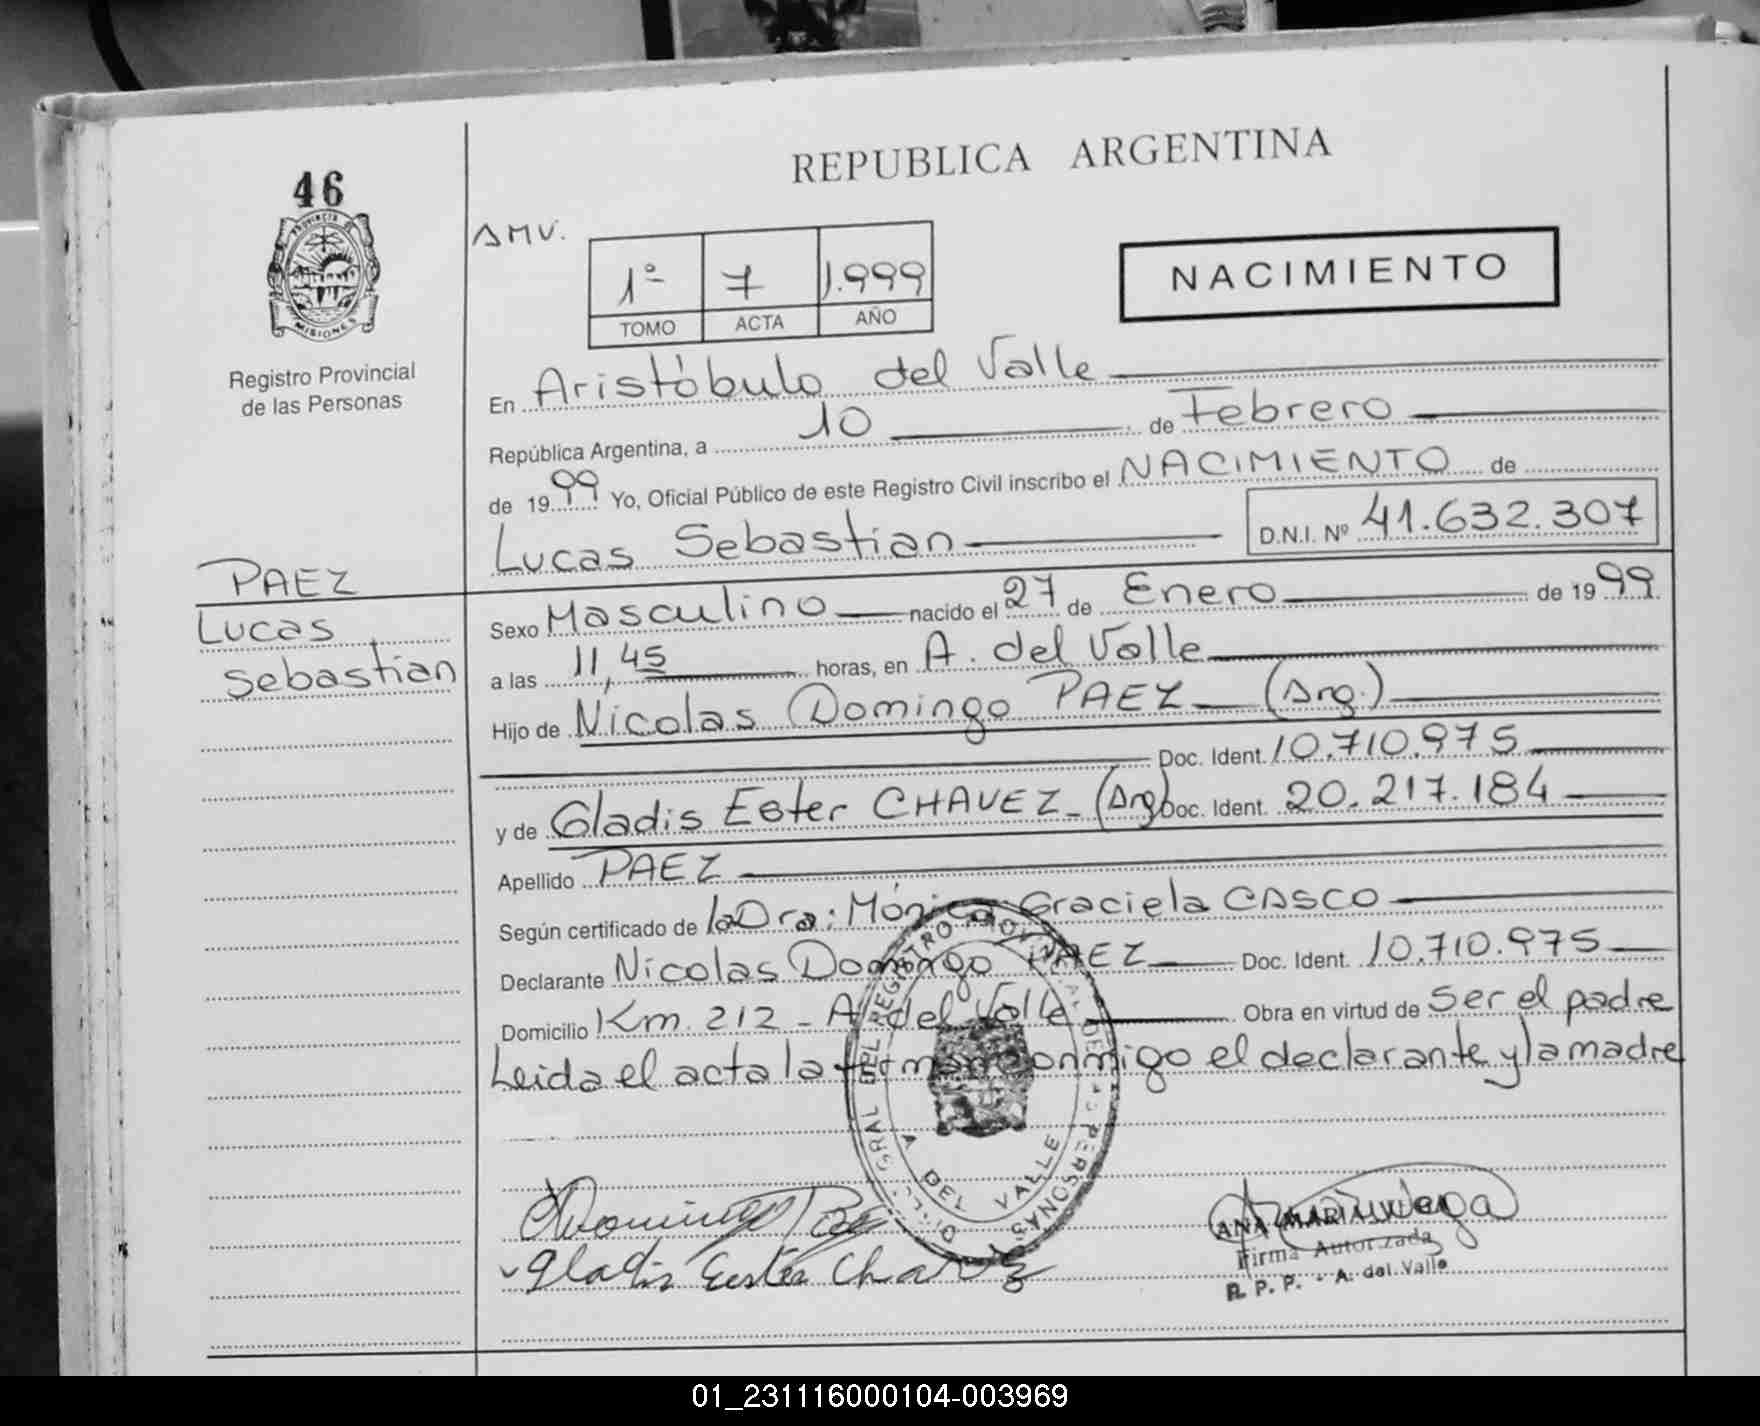 46
PROVINCIA DE
MISIONES
Registro Provincial
de las Personas
PAEZ
Lucas
Sebastian
REPUBLICA ARGENTINA
AMV.
1º 7 1.999
TOMO ACTA AÑO
NACIMIENTO
En Aristóbulo del Valle
República Argentina, a 10 de Febrero
de 1999 Yo, Oficial Público de este Registro Civil inscribo el NACIMIENTO de
Lucas Sebastian D.N.I. Nº 41.632.307
Sexo Masculino nacido el 27 de Enero de 1999
a las 11,45 horas, en A. del Valle
Hijo de Nicolas Domingo PAEZ (Arg.)
Doc. Ident. 10.710.975
y de Gladis Ester CHAVEZ (Arg) Doc. Ident. 20.217.184
Apellido PAEZ
Según certificado de la Dra: Mónica Graciela CASCO
Declarante Nicolas Domingo PAEZ Doc. Ident. 10.710.975
Domicilio Km. 212 - A. del Valle Obra en virtud de ser el padre
Leida el acta la firman conmigo el declarante y la madre
GRAL DEL REGISTRO PROVINCIAL DE LAS PERSONAS
A DEL VALLE
Domingo Paez
Gladis Ester Chavez
ANA MARIA
Firma Autorizada
R. P. P. - A. del Valle
01_231116000104-003969